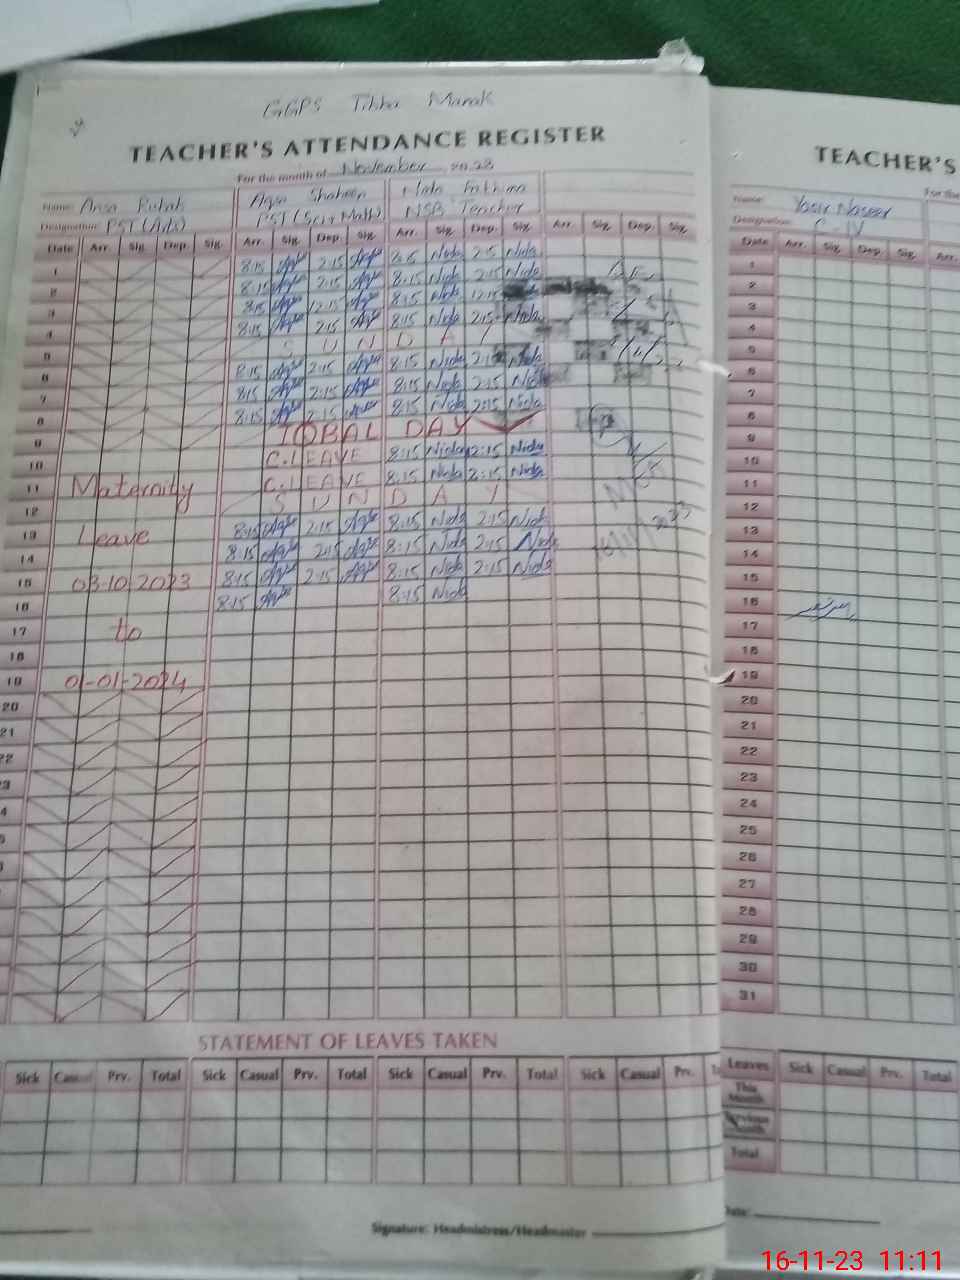 GGPS Tibba Manak
TEACHER'S ATTENDANCE REGISTER
For the month of November 2023
Name: Aqsa Shaheen Nida Fatima
Designation: PST (Arts) PST (Sci + Math) NSB Teacher
Date Arr. Sig. Dep. Sig. Arr. Sig. Dep. Sig. Arr. Sig. Dep. Sig. Arr. Sig. Dep. Sig.
1 8:15 2:15 8:15 Nida 2:15 Nida
2 8:15 2:15 8:15 Nida 2:15 Nida
3 8:15 12:15 8:15 Nida 12:15
4 8:15 2:15 8:15 Nida 2:15 Nida
5 S U N D A Y
6 8:15 2:15 8:15 Nida 2:15 Nida
7 8:15 2:15 8:15 Nida 2:15 Nida
8 8:15 2:15 8:15 Nida 2:15 Nida
9 IQBAL DAY
10 C.LEAVE 8:15 Nida 2:15 Nida
11 Maternity C.LEAVE 8:15 Nida 2:15 Nida
12 S U N D A Y
13 Leave 8:15 2:15 8:15 Nida 2:15 Nida
14 8:15 2:15 8:15 Nida 2:15 Nida
15 03-10-2023 8:15 2:15 8:15 Nida 2:15 Nida
16 8:15 8:15 Nida
17 to
18
19 01-01-2024
20
21
22
23
STATEMENT OF LEAVES TAKEN
Sick Casual Prv. Total Sick Casual Prv. Total Sick Casual Prv. Total Sick Casual Prv.
Signature: Headmistress/Headmaster
TEACHER'S
For the
Name: Yasir Naseer
Designation: C-IV
Date Arr. Sig. Dep. Sig. Arr.
1
2
3
4
5
6
7
8
9
10
11
12
13
14
15
16
17
18
19
20
21
22
23
24
25
26
27
28
29
30
31
Leaves Sick Casual Prv. Total
This Month
Previous Month
Total
Date:
16-11-23 11:11